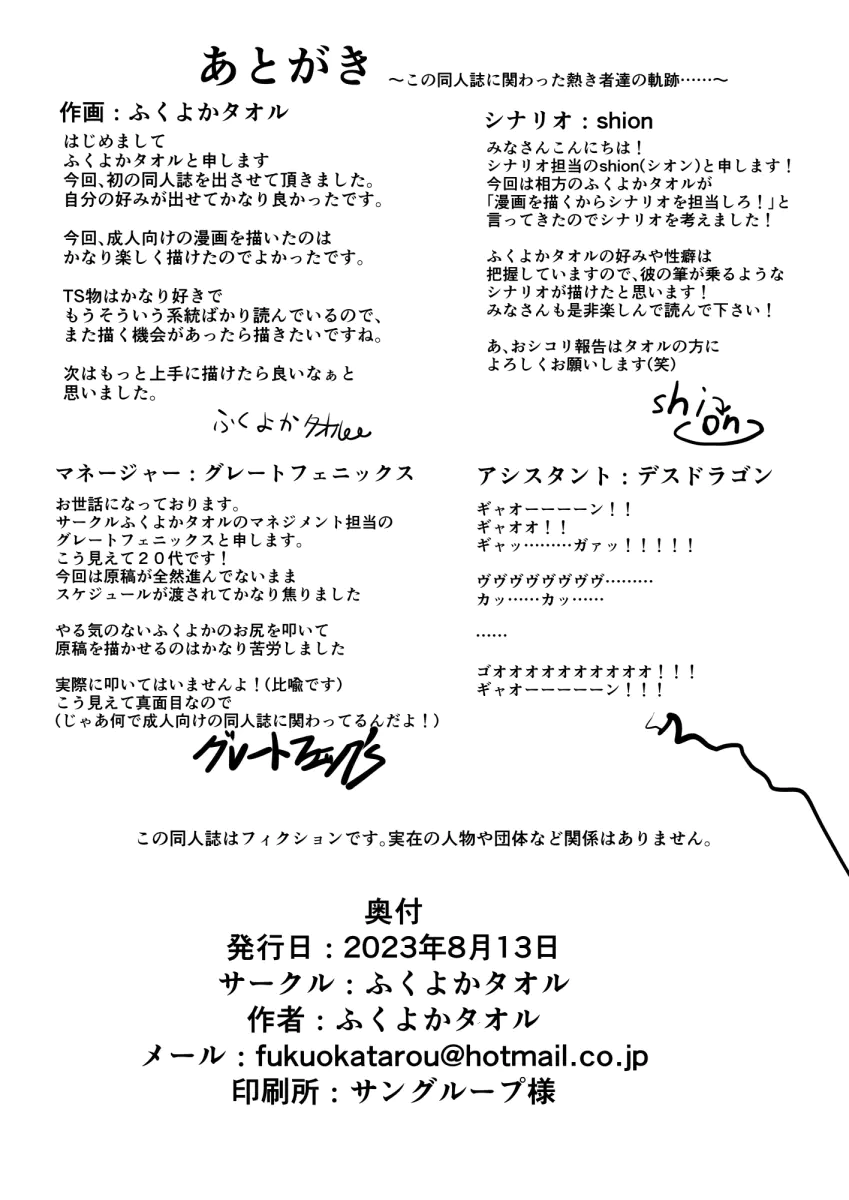 あとがき
～この同人誌に関わった熱き者達の軌跡……～
作画：ふくよかタオル
はじめまして
ふくよかタオルと申します
今回、初の同人誌を出させて頂きました。
自分の好みが出せてかなり良かったです。
今回、成人向けの漫画を描いたのは
かなり楽しく描けたのでよかったです。
TS物はかなり好きで
もうそういう系統ばかり読んでいるので、
また描く機会があったら描きたいですね。
次はもっと上手に描けたら良いなぁと
思いました。
シナリオ：shion
みなさんこんにちは！
シナリオ担当のshion(シオン)と申します！
今回は相方のふくよかタオルが
「漫画を描くからシナリオを担当しろ！」と
言ってきたのでシナリオを考えました！
ふくよかタオルの好みや性癖は
把握していますので、彼の筆が乗るような
シナリオが描けたと思います！
みなさんも是非楽しんで読んで下さい！
あ、おシコリ報告はタオルの方に
よろしくお願いします(笑)
shion
マネージャー：グレートフェニックス
お世話になっております。
サークルふくよかタオルのマネジメント担当の
グレートフェニックスと申します。
こう見えて２０代です！
今回は原稿が全然進んでないまま
スケジュールが渡されてかなり焦りました
やる気のないふくよかのお尻を叩いて
原稿を描かせるのはかなり苦労しました
実際に叩いてはいませんよ！(比喩です)
こう見えて真面目なので
(じゃあ何で成人向けの同人誌に関わってるんだよ！)
アシスタント：デスドラゴン
ギャオーーーーン！！
ギャオオ！！
ギャッ………ガァッ！！！！！
ヴヴヴヴヴヴヴヴ………
カッ……カッ……
……
ゴオオオオオオオオオオ！！！
ギャオーーーーーン！！！
この同人誌はフィクションです。実在の人物や団体など関係はありません。
奥付
発行日：2023年8月13日
サークル：ふくよかタオル
作者：ふくよかタオル
メール：fukuokatarou@hotmail.co.jp
印刷所：サングループ様